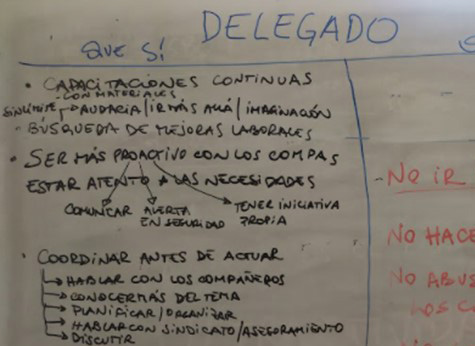 DELEGADO
QUE SÍ
• CAPACITACIONES CONTINUAS
- CON MATERIALES
SIN LÍMITE → AUDACIA/IR MÁS ALLÁ/IMAGINACIÓN
- BÚSQUEDA DE MEJORAS LABORALES
• SER MÁS PROACTIVO CON LOS COMPAS
ESTAR ATENTO A LAS NECESIDADES
COMUNICAR ALERTA TENER INICIATIVA
EN SEGURIDAD PROPIA
• COORDINAR ANTES DE ACTUAR
→ HABLAR CON LOS COMPAÑEROS
→ CONOCER MÁS DEL TEMA
→ PLANIFICAR/ORGANIZAR
→ HABLAR CON SINDICATO/ASESORAMIENTO
→ DISCUTIR
- NO IR
NO HACE
NO ABUS
LOS C